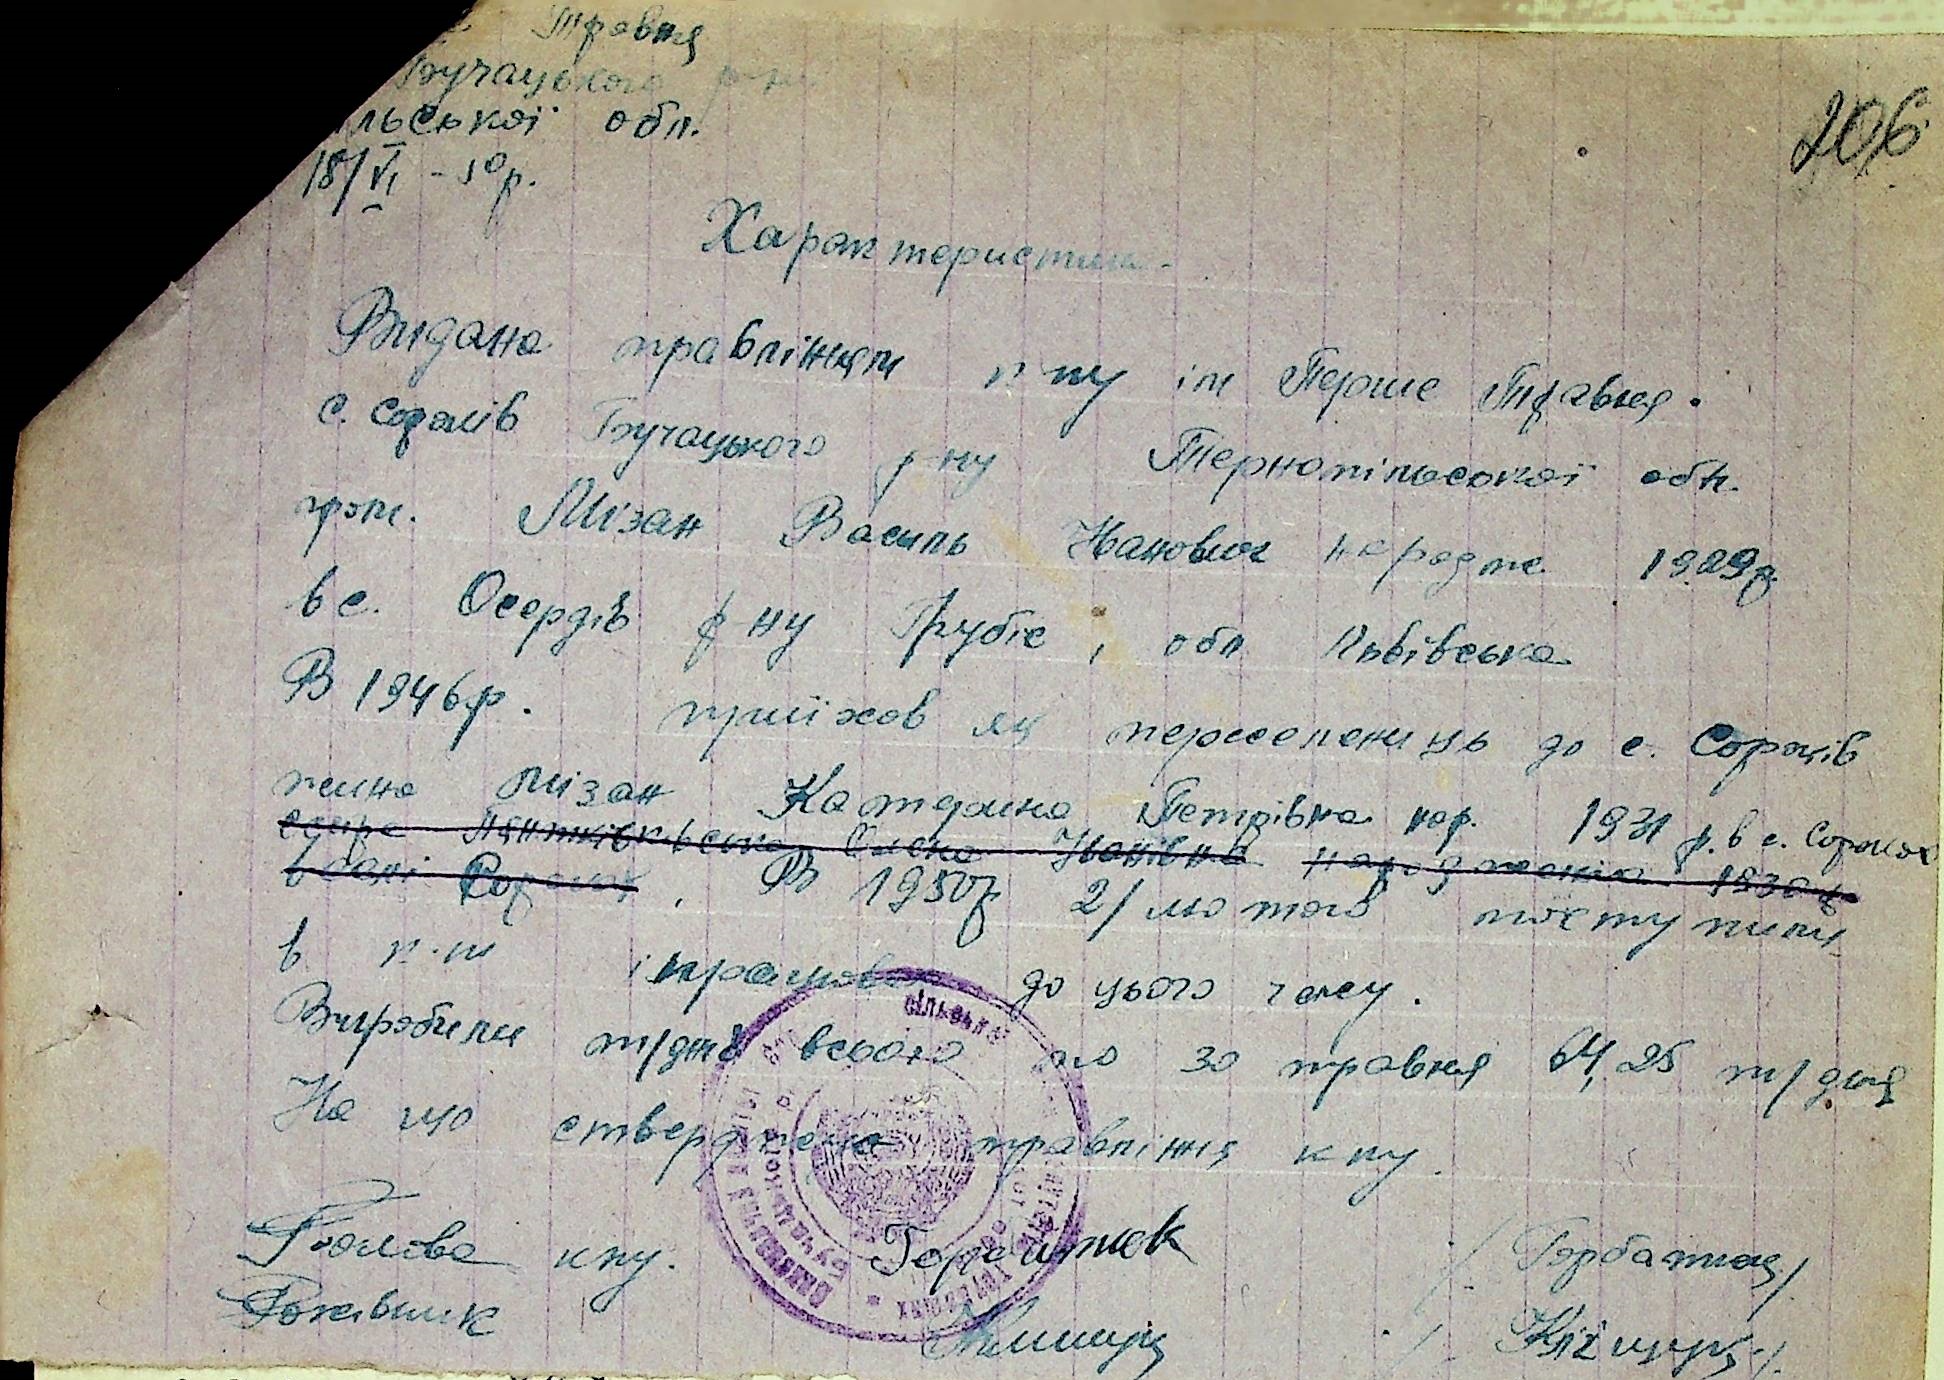 Травня
Бучацького р-ну
льської обл.
18/VI - 50р.
206
Характеристика
Видана правлінням к-пу ім Перше Травня.
с. Сороків Бучацького р ну Тернопільської обл.
гром. Мізан Василь Іванович народже 1929р
в с. Осердів р ну Грубіє, обл Львівська
В 1946р. приїхов як переселенець до с. Сороків
жина Мізан Катерина Петрівна нар. 1931 р. в с. Сороках
Іванівна народження 1930р
в селі Сороках, В 1950р 2/лютого поступили
в к-п і працюва до цього часу.
Виробили т/днів всього по 30 травня 64,25 т/дня
На що стверджена правління кпу.
Голова кпу. /Горбатюк/